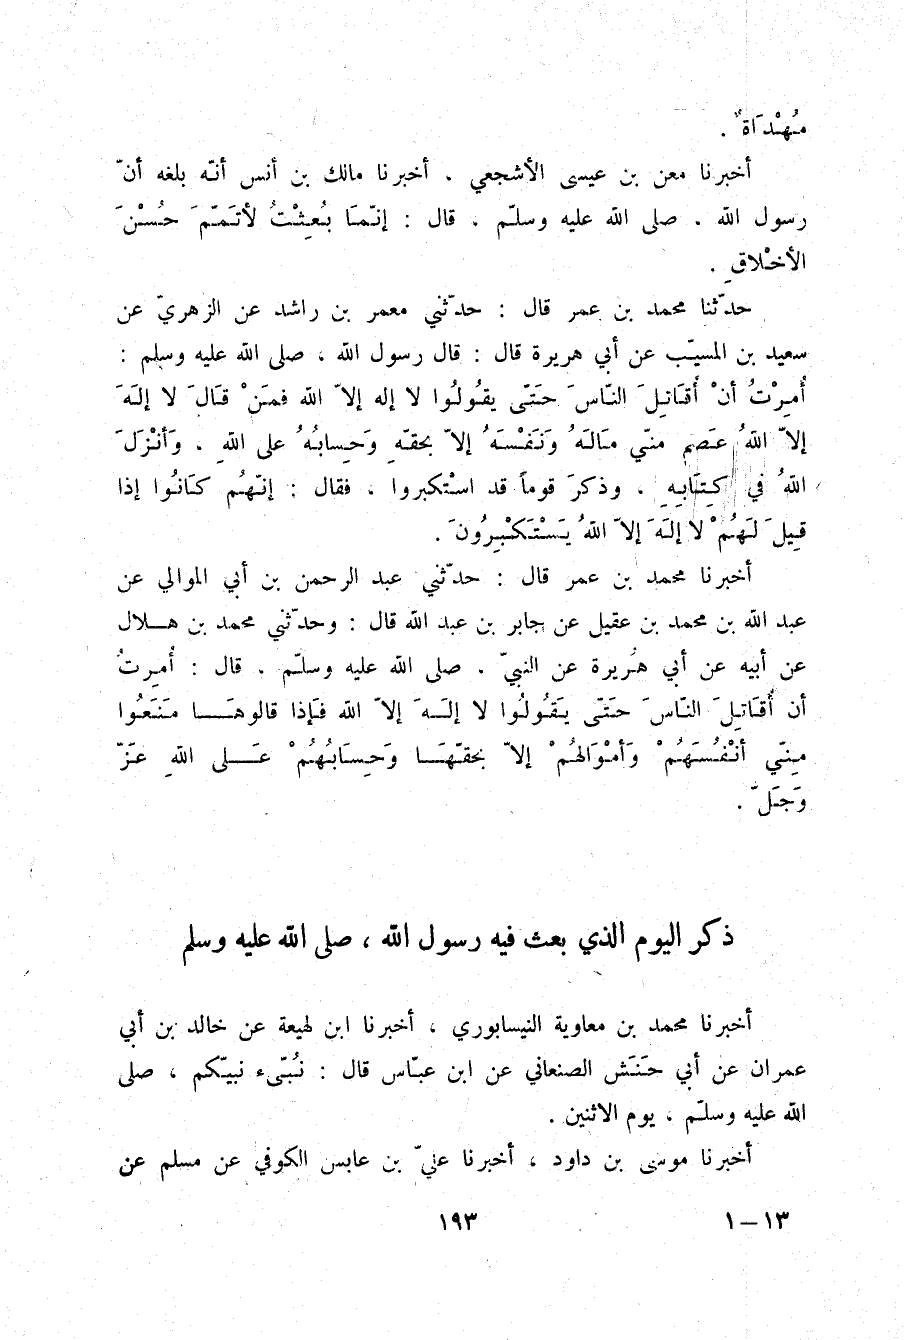 مُهْدَاةٌ .
أخبرنا معن بن عيسى الأشجعي ، أخبرنا مالك بن أنس أنّه بلغه أنّ
رسول الله ، صلى الله عليه وسلّم ، قال : إنّمَا بُعِثْتُ لأتَمّمَ حُسْنَ
الأخْلاقِ .
حدّثنا محمد بن عمر قال : حدّثني معمر بن راشد عن الزهريّ عن
سعيد بن المسيّب عن أبي هريرة قال : قال رسول الله ، صلى الله عليه وسلم :
أُمِرْتُ أنْ أُقَاتِلَ النّاسَ حَتّى يقُولُوا لا إله إلاّ الله فمَنْ قَالَ لا إلَهَ
إلاّ اللهُ عَصَم منّي مَالَهُ وَنَفْسَهُ إلاّ بحَقّهِ وَحِسابُهُ على اللهِ ، وَأنْزَلَ
اللهُ في كِتَابِهِ ، وذكرَ قوماً قد استْكبروا ، فقال : إنّهُم كَانُوا إذا
قِيلَ لَهُمْ لا إلَهَ إلاّ اللهُ يَسْتَكْبِرُونَ .
أخبرنا محمد بن عمر قال : حدّثني عبد الرحمن بن أبي الموالي عن
عبد الله بن محمد بن عقيل عن جابر بن عبد الله قال : وحدّثني محمد بن هـلال
عن أبيه عن أبي هُريرة عن النبيّ ، صلى الله عليه وسلّم ، قال : أُمِرتُ
أن أُقَاتِلَ النّاسَ حَتّى يَقُولُوا لا إلَهَ إلاّ الله فَإذا قالوهَـا مَنَعُوا
مِنّي أنْفُسَهُمْ وَأمْوَالهُمْ إلاّ بحَقّهَـا وَحِسَابُهُمْ عَـلى اللهِ عَزّ
وَجَلّ .
ذكر اليوم الذي بعث فيه رسول الله ، صلى الله عليه وسلم
أخبرنا محمد بن معاوية النيسابوري ، أخبرنا ابن لهيعة عن خالد بن أبي
عمران عن أبي حَنَش الصنعاني عن ابن عبّاس قال : نُبّىء نبيّكم ، صلى
الله عليه وسلّم ، يوم الاثنين .
أخبرنا موسى بن داود ، أخبرنا عليّ بن عابس الكوفي عن مسلم عن
١٣ – ١
١٩٣